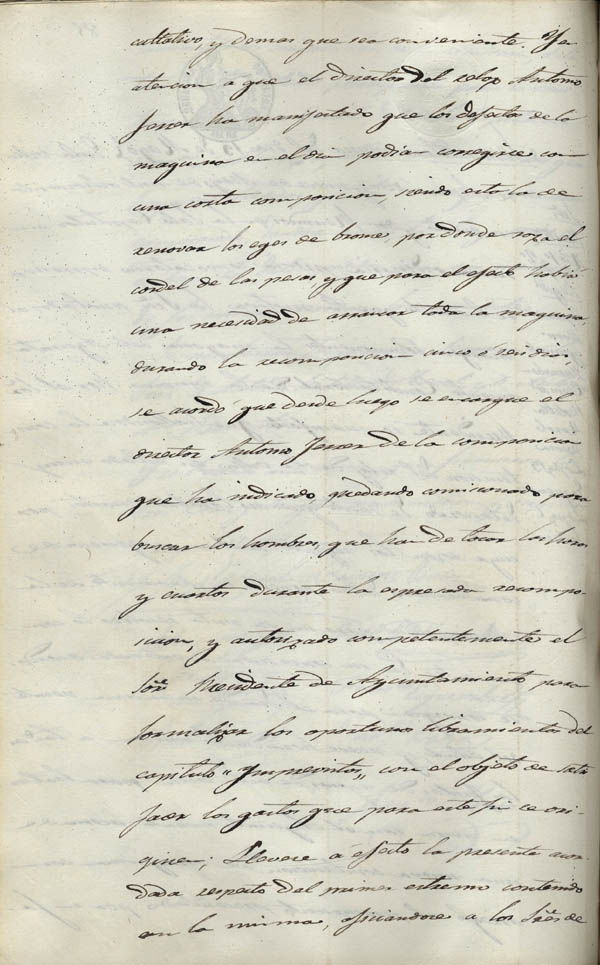 cultativo, y demas que sea conveniente. Y en
atencion a que el director del relox Antonio
Ferrer ha manifestado que los defectos de la
maquina en el dia podian corregirse con
una corta composicion, siendo esta la de
renovar los eges de bronce, por donde roza el
cordel de las pesas, y que para el efecto habia
una necesidad de arrancar toda la maquina,
durando la recomposicion cinco ó seis dias,
se acordó que desde luego se encargue el
director Antonio Ferrer de la composicion
que ha indicado, quedando comisionado para
buscar los hombres, que han de tocar las horas
y cuartos durante la espresada recompo-
sicion, y autorizado competentemente el
Sor. Presidente de Ayuntamiento para
formalizar los oportunos libramientos del
capitulo "Imprevistos", con el objeto de satis
facer los gastos que para este fin se ori-
ginen; Llevese á efecto la presente acor-
dada respecto del primer estremo contenido
en la misma, oficiandose a los Sres. de